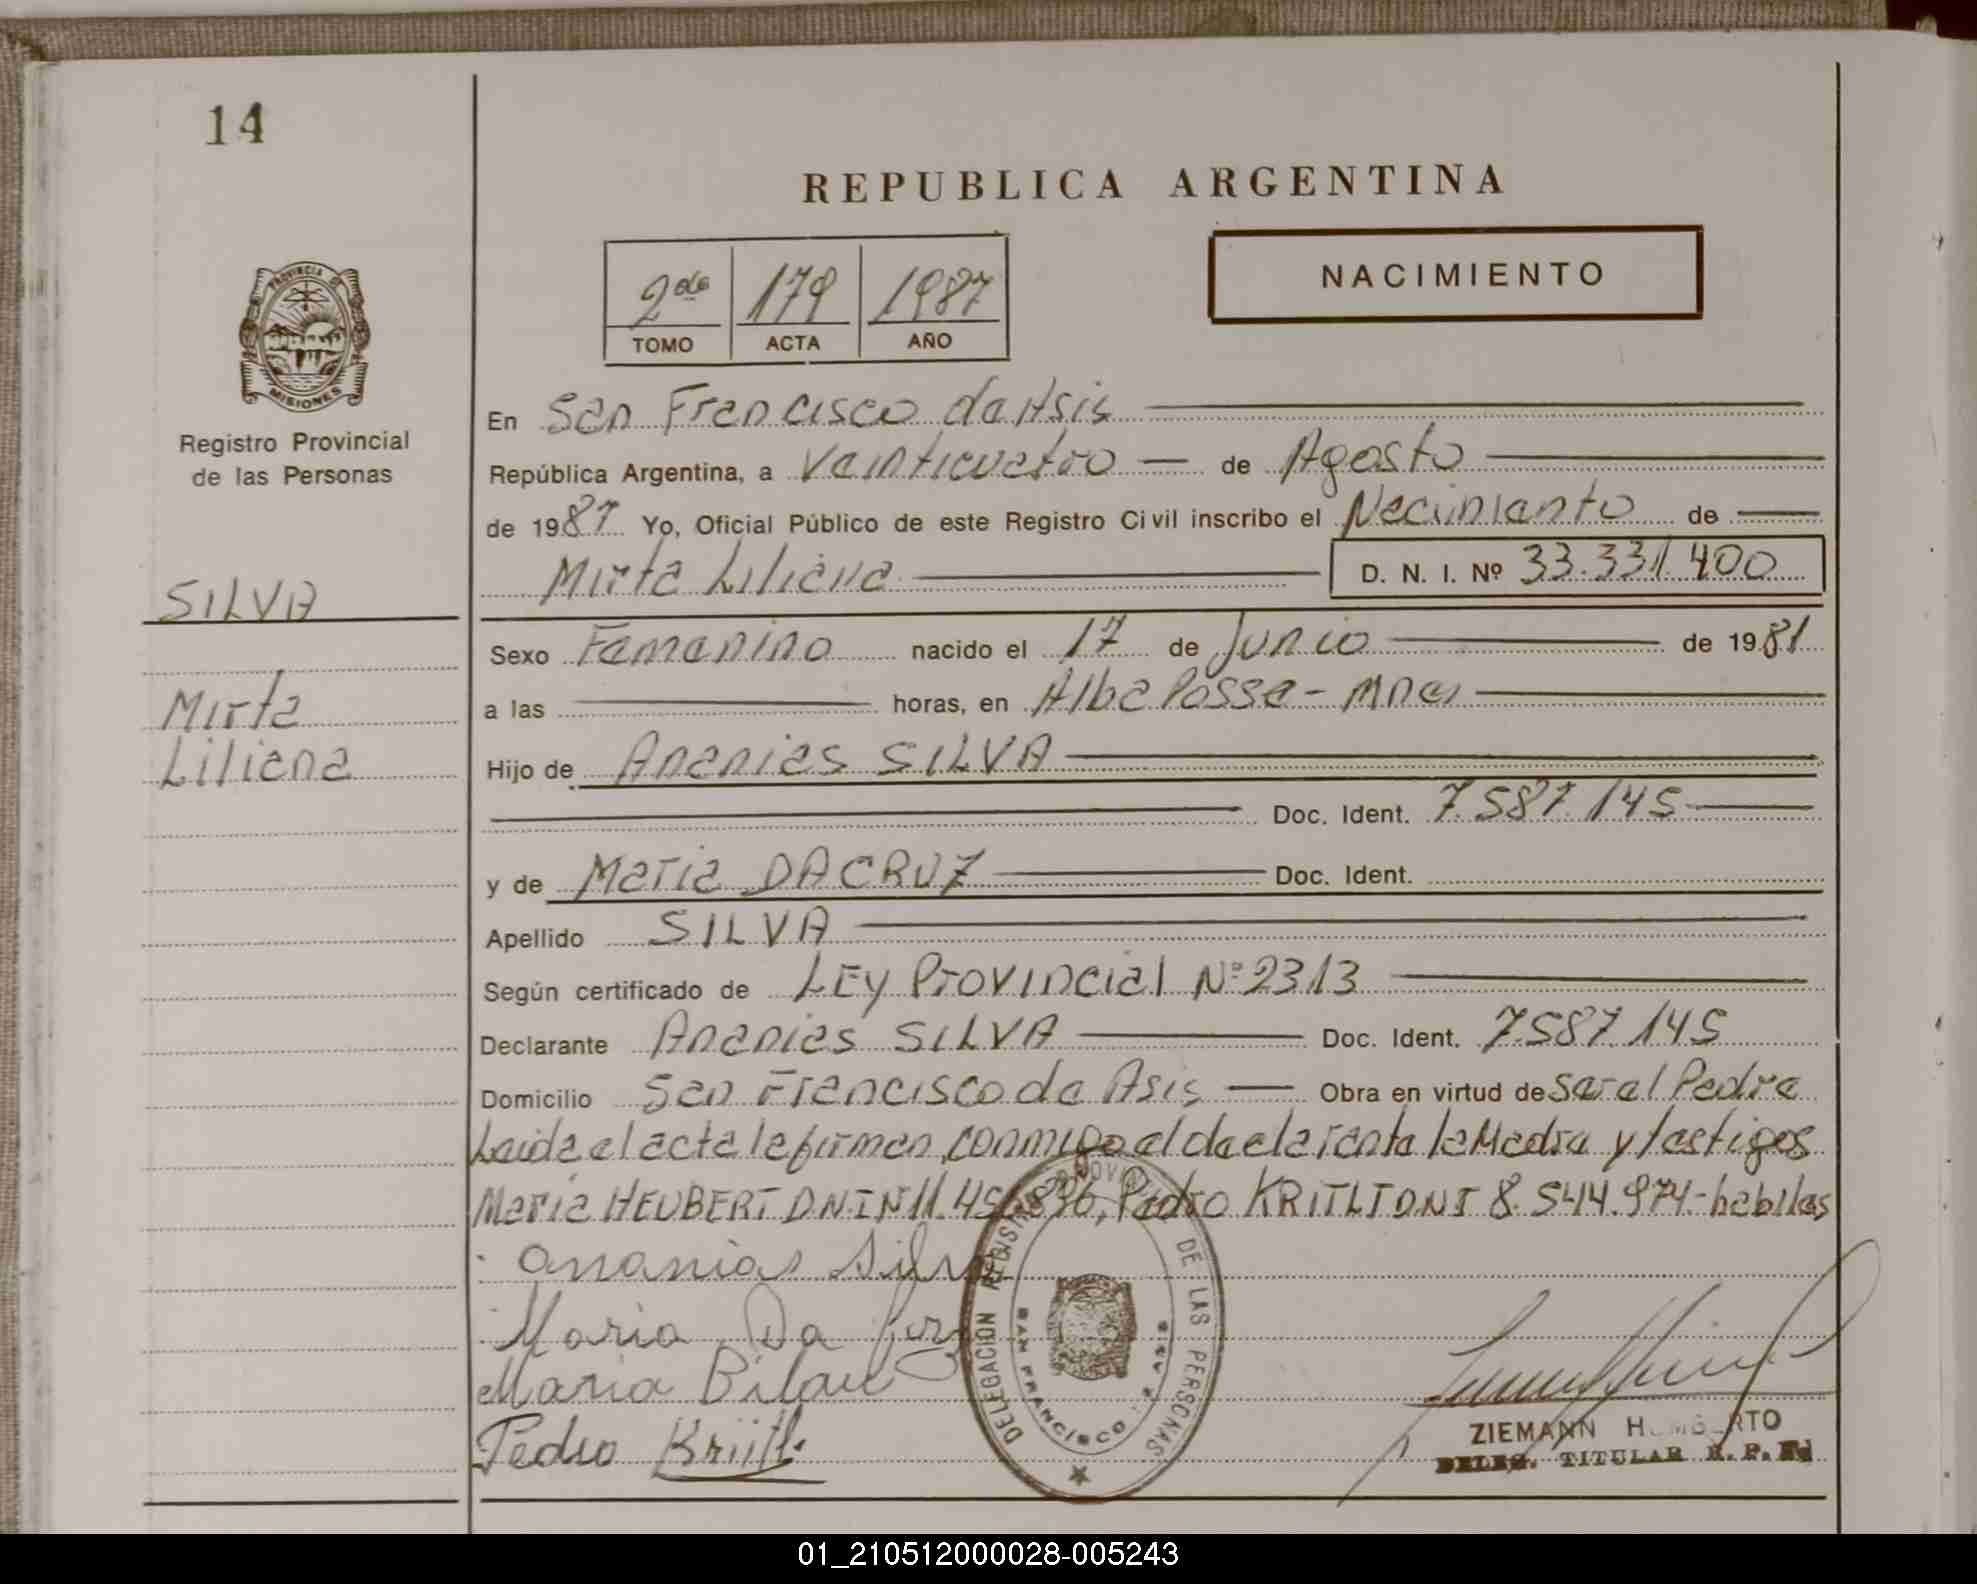 14
REPUBLICA ARGENTINA
2do 179 1987
TOMO ACTA AÑO
NACIMIENTO
PROVINCIA DE
MISIONES
Registro Provincial
de las Personas
SILVA
Mirta
Liliana
En San Francisco de Asis
República Argentina, a Veinticuatro de Agosto
de 1987 Yo, Oficial Público de este Registro Civil inscribo el Nacimiento de
Mirta Liliana D. N. I. Nº 33.331.400
Sexo Femenino nacido el 17 de Junio de 1981
a las horas, en Alba Posse - Mnes
Hijo de Ananias SILVA
Doc. Ident. 7.587.145
y de Maria DA CRUZ Doc. Ident.
Apellido SILVA
Según certificado de LEy Provincial Nº 2313
Declarante Ananias SILVA Doc. Ident. 7.587.145
Domicilio San Francisco de Asis Obra en virtud de Ser el Padre
Leida el acta la firman conmigo el declarante la Madre y testigos
Maria HEUBERT DNI Nº 11.45 .836, Pedro KRITLI DNI 8.544.974.- habiles
Ananias Silva
Maria Da Cruz
Maria
Pedro
DELEGACION REGISTRO PROVINCIAL DE LAS PERSONAS
SAN FRANCISCO DE ASIS
ZIEMANN HUMBERTO
DELEG. TITULAR R. P.
01_210512000028-005243